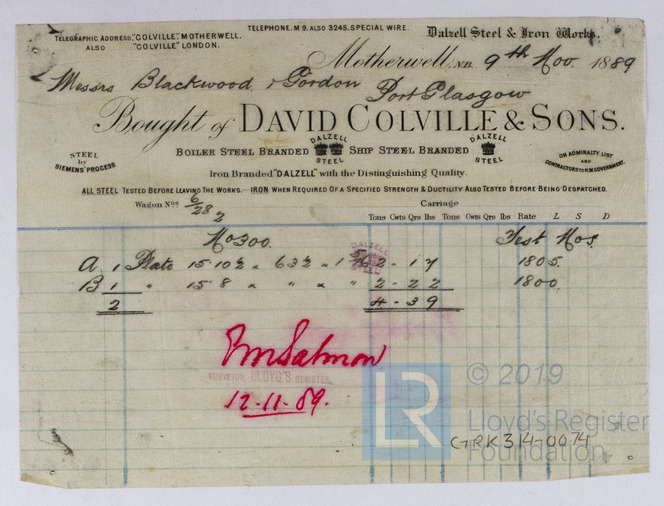 TELEPHONE, M 9. ALSO 3245. SPECIAL WIRE.
TELEGRAPHIC ADDRESS, "COLVILLE", MOTHERWELL.
ALSO "COLVILLE" LONDON.
Dalzell Steel & Iron Works.
Motherwell, N.B. 9th Nov 1889
Messrs Blackwood & Gordon
Port Glasgow
Bought of DAVID COLVILLE & SONS.
STEEL by SIEMENS' PROCESS
BOILER STEEL BRANDED DALZELL STEEL SHIP STEEL BRANDED DALZELL STEEL
ON ADMIRALTY LIST AND CONTRACTORS TO H.M. GOVERNMENT.
Iron Branded "DALZELL" with the Distinguishing Quality.
ALL STEEL TESTED BEFORE LEAVING THE WORKS. IRON WHEN REQUIRED OF A SPECIFIED STRENGTH & DUCTILITY ALSO TESTED BEFORE BEING DESPATCHED.
Wagon Nos 6/282
Carriage
Tons Cwts Qrs lbs Tons Cwts Qrs lbs Rate L S D
No 300. Test Nos.
A 1 Plate 15·10½ × 63½ × 1 2-17 1805.
B 1 " 15·8 " " × " 2-22 1800.
2 4-39
DALZELL STEEL
Salmon
SURVEYOR, LLOYD'S REGISTER.
12-11-89.
LR
© 2019
Lloyd's Register
Foundation
GRK314-0074